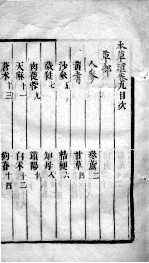 本草選卷九目次
草部
人參
黃耆
甘草二
沙參五
桔梗六
葳蕤七
知母八
肉蓯蓉九
鎖陽十
天麻十一
白朮十二
蒼朮十三
狗脊十四